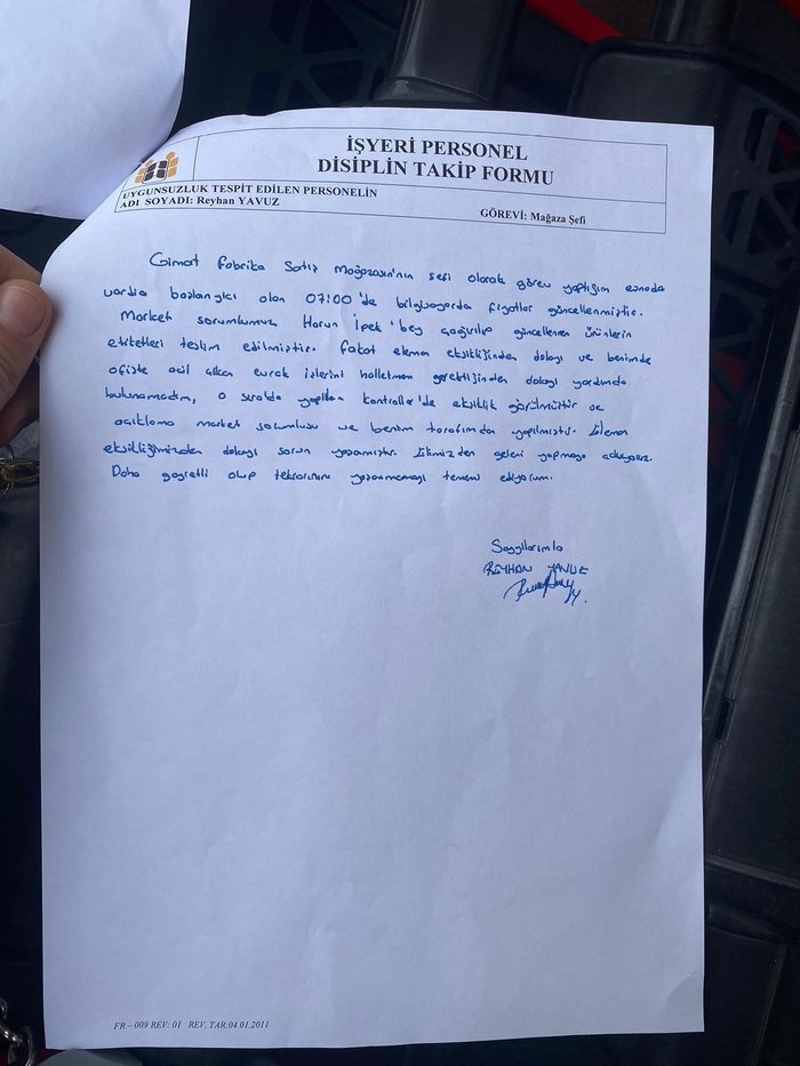 İŞYERİ PERSONEL
DİSİPLİN TAKİP FORMU
UYGUNSUZLUK TESPİT EDİLEN PERSONELİN
ADI SOYADI: Reyhan YAVUZ
GÖREVİ: Mağaza Şefi
Gimat Fabrika Satış Mağazası'nın şefi olarak görev yaptığım esnada
vardia başlangıcı olan 07:00'de bilgisayarda fiyatlar güncellenmiştir.
Market sorumlumuz Harun İpek'bey çağırılıp güncellenen ürünlerin
etiketleri teslim edilmiştir. Fakat eleman eksikliğinden dolayı ve benimde
ofiste acil çıkan evrak işlerini halletmem gerektiğinden dolayı yardımda
bulunamadım, o sırada yapılan kontroller'de eksiklik görülmüştür ve
açıklama market sorumlusu ve benim tarafımdan yapılmıştır. Eleman
eksikliğimizden dolayı sorun yaşanmıştır. Elimizden geleni yapmaya çalışıyoruz.
Daha gayretli olup tekrarının yaşanmamayı temeni ediyorum.
Saygılarımla
REYHAN YAVUZ
FR – 009 REV: 01 REV. TAR:04.01.2011